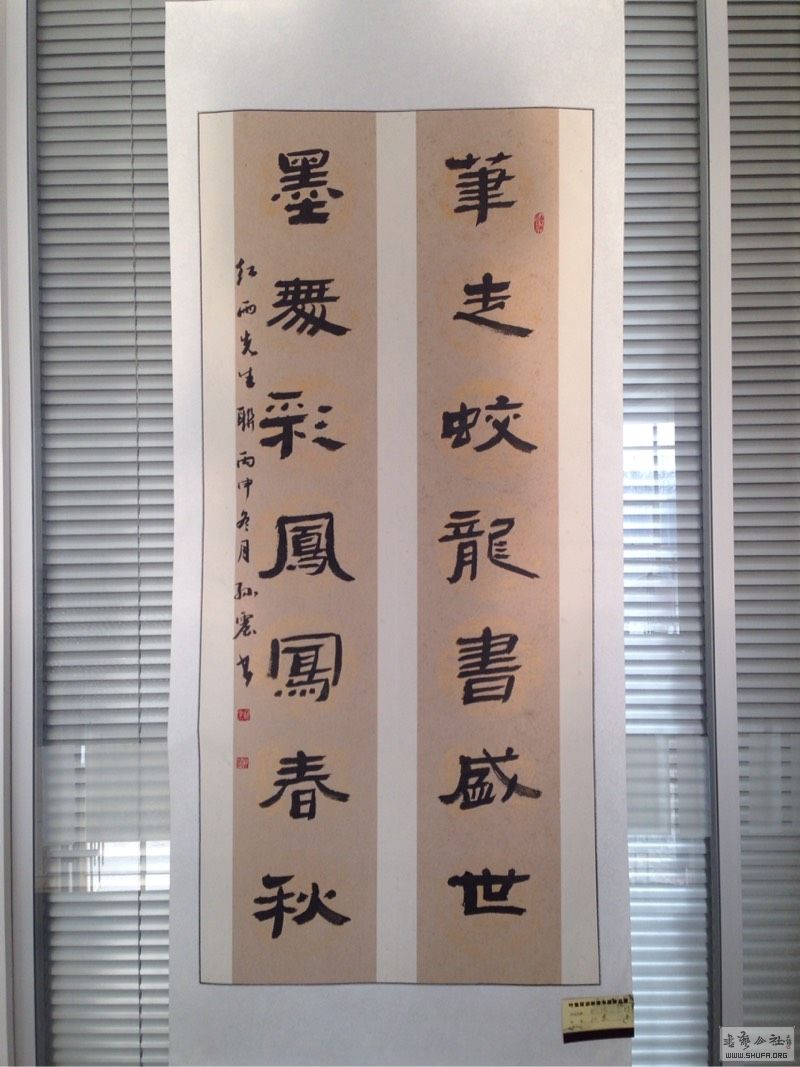 筆走蛟龍書盛世
墨舞彩鳳寫春秋
红雨先生联丙申冬月孙震书
书艺公社
WWW.SHUFA.ORG